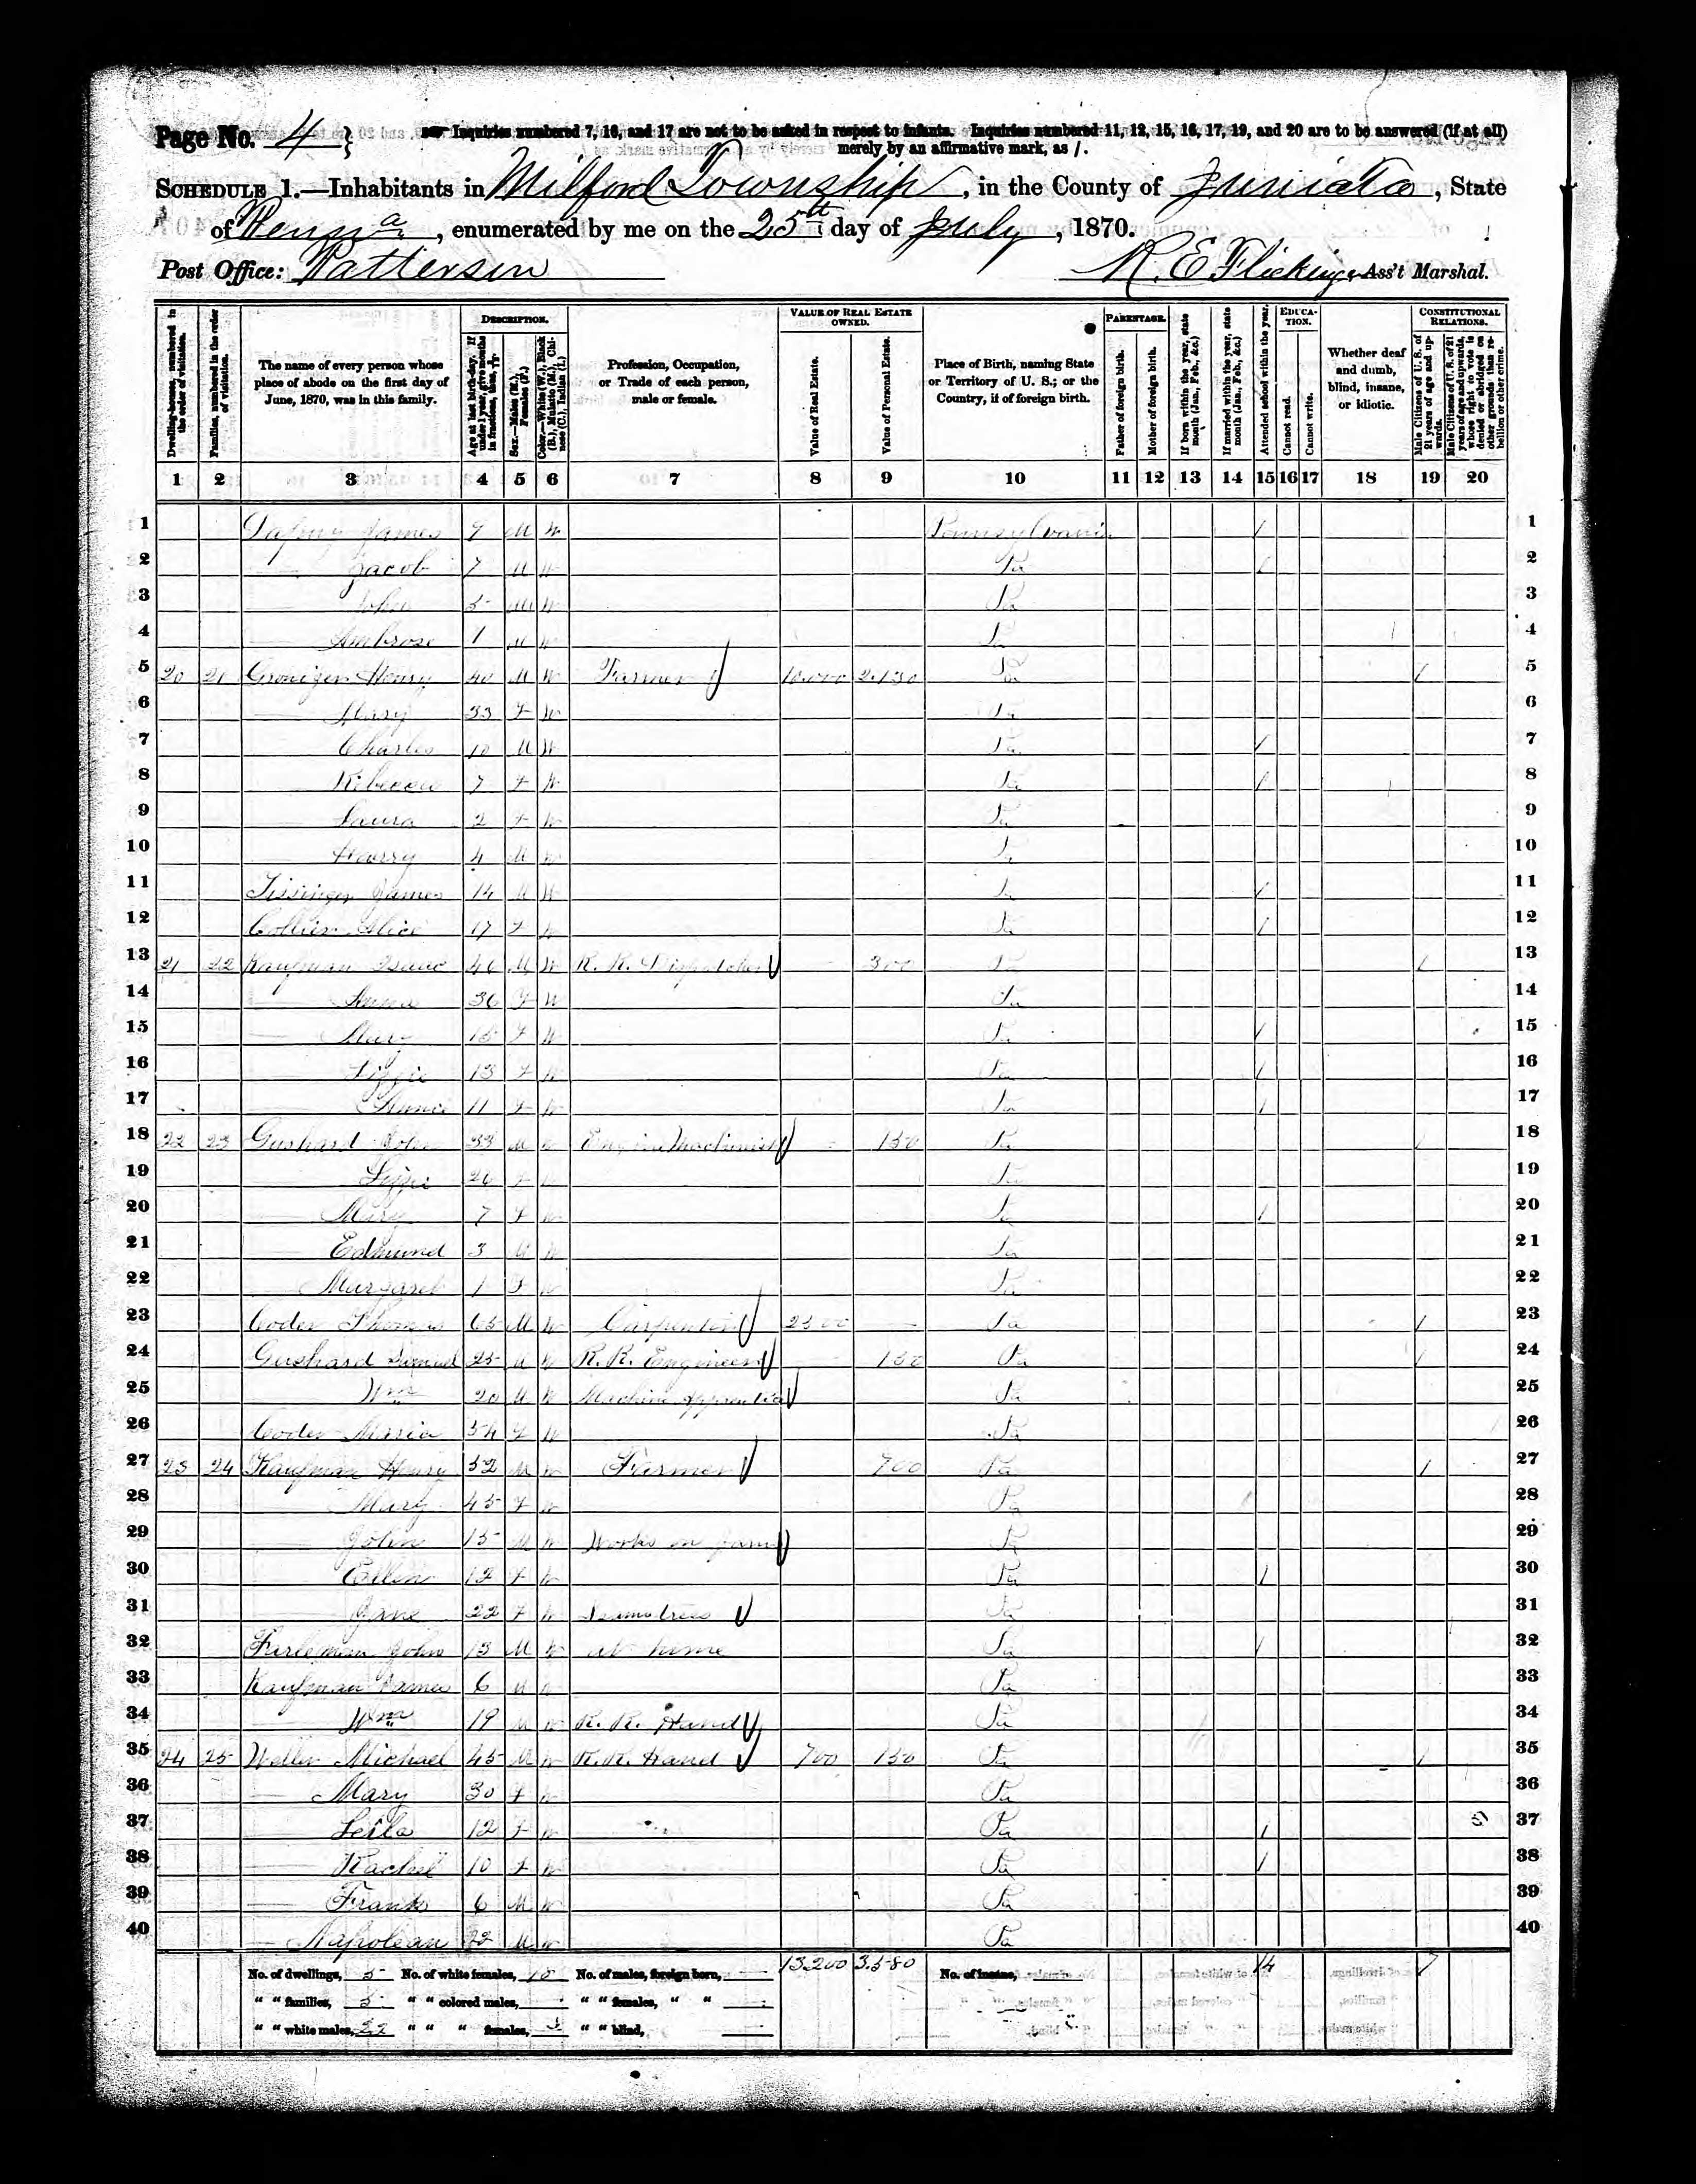 Page No. 4 } Inquiries numbered 7, 16, and 17 are not to be asked in respect to infants. Inquiries numbered 11, 12, 15, 16, 17, 19, and 20 are to be answered (if at all)
merely by an affirmative mark, as /.
SCHEDULE 1.—Inhabitants in Milford Township, in the County of Juniata, State
of Penna, enumerated by me on the 25th day of July, 1870.
Post Office: Patterson R. E. Flickinger Ass't Marshal.
Dwelling-houses, numbered in the order of visitation.
Families, numbered in the order of visitation.
The name of every person whose place of abode on the first day of June, 1870, was in this family.
DESCRIPTION.
Age at last birth-day. If under 1 year, give months in fractions, thus,
Sex.—Males (M.), Females (F.)
Color.—White (W.), Black (B.), Mulatto (M.), Chinese (C.), Indian (I.)
Profession, Occupation, or Trade of each person, male or female.
VALUE OF REAL ESTATE OWNED.
Value of Real Estate.
Value of Personal Estate.
Place of Birth, naming State or Territory of U. S.; or the Country, if of foreign birth.
PARENTAGE.
Father of foreign birth.
Mother of foreign birth.
If born within the year, state month (Jan., Feb., &c.)
If married within the year, state month (Jan., Feb., &c.)
Attended school within the year.
EDUCATION.
Cannot read.
Cannot write.
Whether deaf and dumb, blind, insane, or idiotic.
CONSTITUTIONAL RELATIONS.
Male Citizens of U. S. of 21 years of age and upwards.
Male Citizens of U. S. of 21 years of age and upwards, whose right to vote is denied or abridged on other grounds than rebellion or other crime.
1 2 3 4 5 6 7 8 9 10 11 12 13 14 15 16 17 18 19 20
1 James 9 M W Pennsylvania / 1
2 — Jacob 7 M W Pa / 2
3 — John 5 M W Pa 3
4 — Ambrose 1 M W Pa 4
5 20 21 Groninger Henry 40 M W Farmer 10,000 2,130 Pa / 5
6 — Mary 33 F W Pa 6
7 — Charles 10 M W Pa / 7
8 — Rebecca 7 F W Pa / 8
9 — Laura 2 F W Pa 9
10 — Harry 4 M W Pa 10
11 James 14 M W Pa / 11
12 Alice 17 F W Pa / 12
13 21 22 Kaufman Isaac 46 M W R. R. Dispatcher 300 Pa / 13
14 — Anna 36 F W Pa 14
15 — Mary 15 F W Pa / 15
16 — Lizzie 13 F W Pa / 16
17 — Annie 11 F W Pa / 17
18 22 23 Gushard John 33 M W Machinist 150 Pa / 18
19 Lizzie 26 F W Pa 19
20 — Mary 7 F W Pa / 20
21 — Edmund 3 M W Pa 21
22 — Margaret 1 F W Pa 22
23 Coder Thomas 65 M W Carpenter 2500 — Pa / 23
24 Gushard Samuel 25 M W R. R. Engineer 150 Pa / 24
25 — Wm 20 M W Machine Apprentice Pa 25
26 Coder Maria 54 F W Pa 26
27 23 24 Kaufman Henry 52 M W Farmer 700 Pa / 27
28 — Mary 45 F W Pa 28
29 — John 15 M W Works on farm Pa 29
30 — Ellen 12 F W Pa / 30
31 — Jane 22 F W Seamstress Pa 31
32 John 13 M W at home Pa / 32
33 Kaufman James 6 M W Pa 33
34 — Wm 19 M W R. R. Hand Pa 34
35 24 25 Weller Michael 45 M W R. R. Hand 700 150 Pa / 35
36 — Mary 30 F W Pa 36
37 — Leila 12 F W Pa / 37
38 — Rachel 10 F W Pa / 38
39 — Frank 6 M W Pa 39
40 — Napolean M W Pa 40
No. of dwellings, 5 No. of white females, 18 No. of males, foreign born, — 13,200 3,580 No. of insane, 14 7
" " families, 5 " " colored males, — " " females, " " —
" " white males, 22 " " " females, " " blind, —